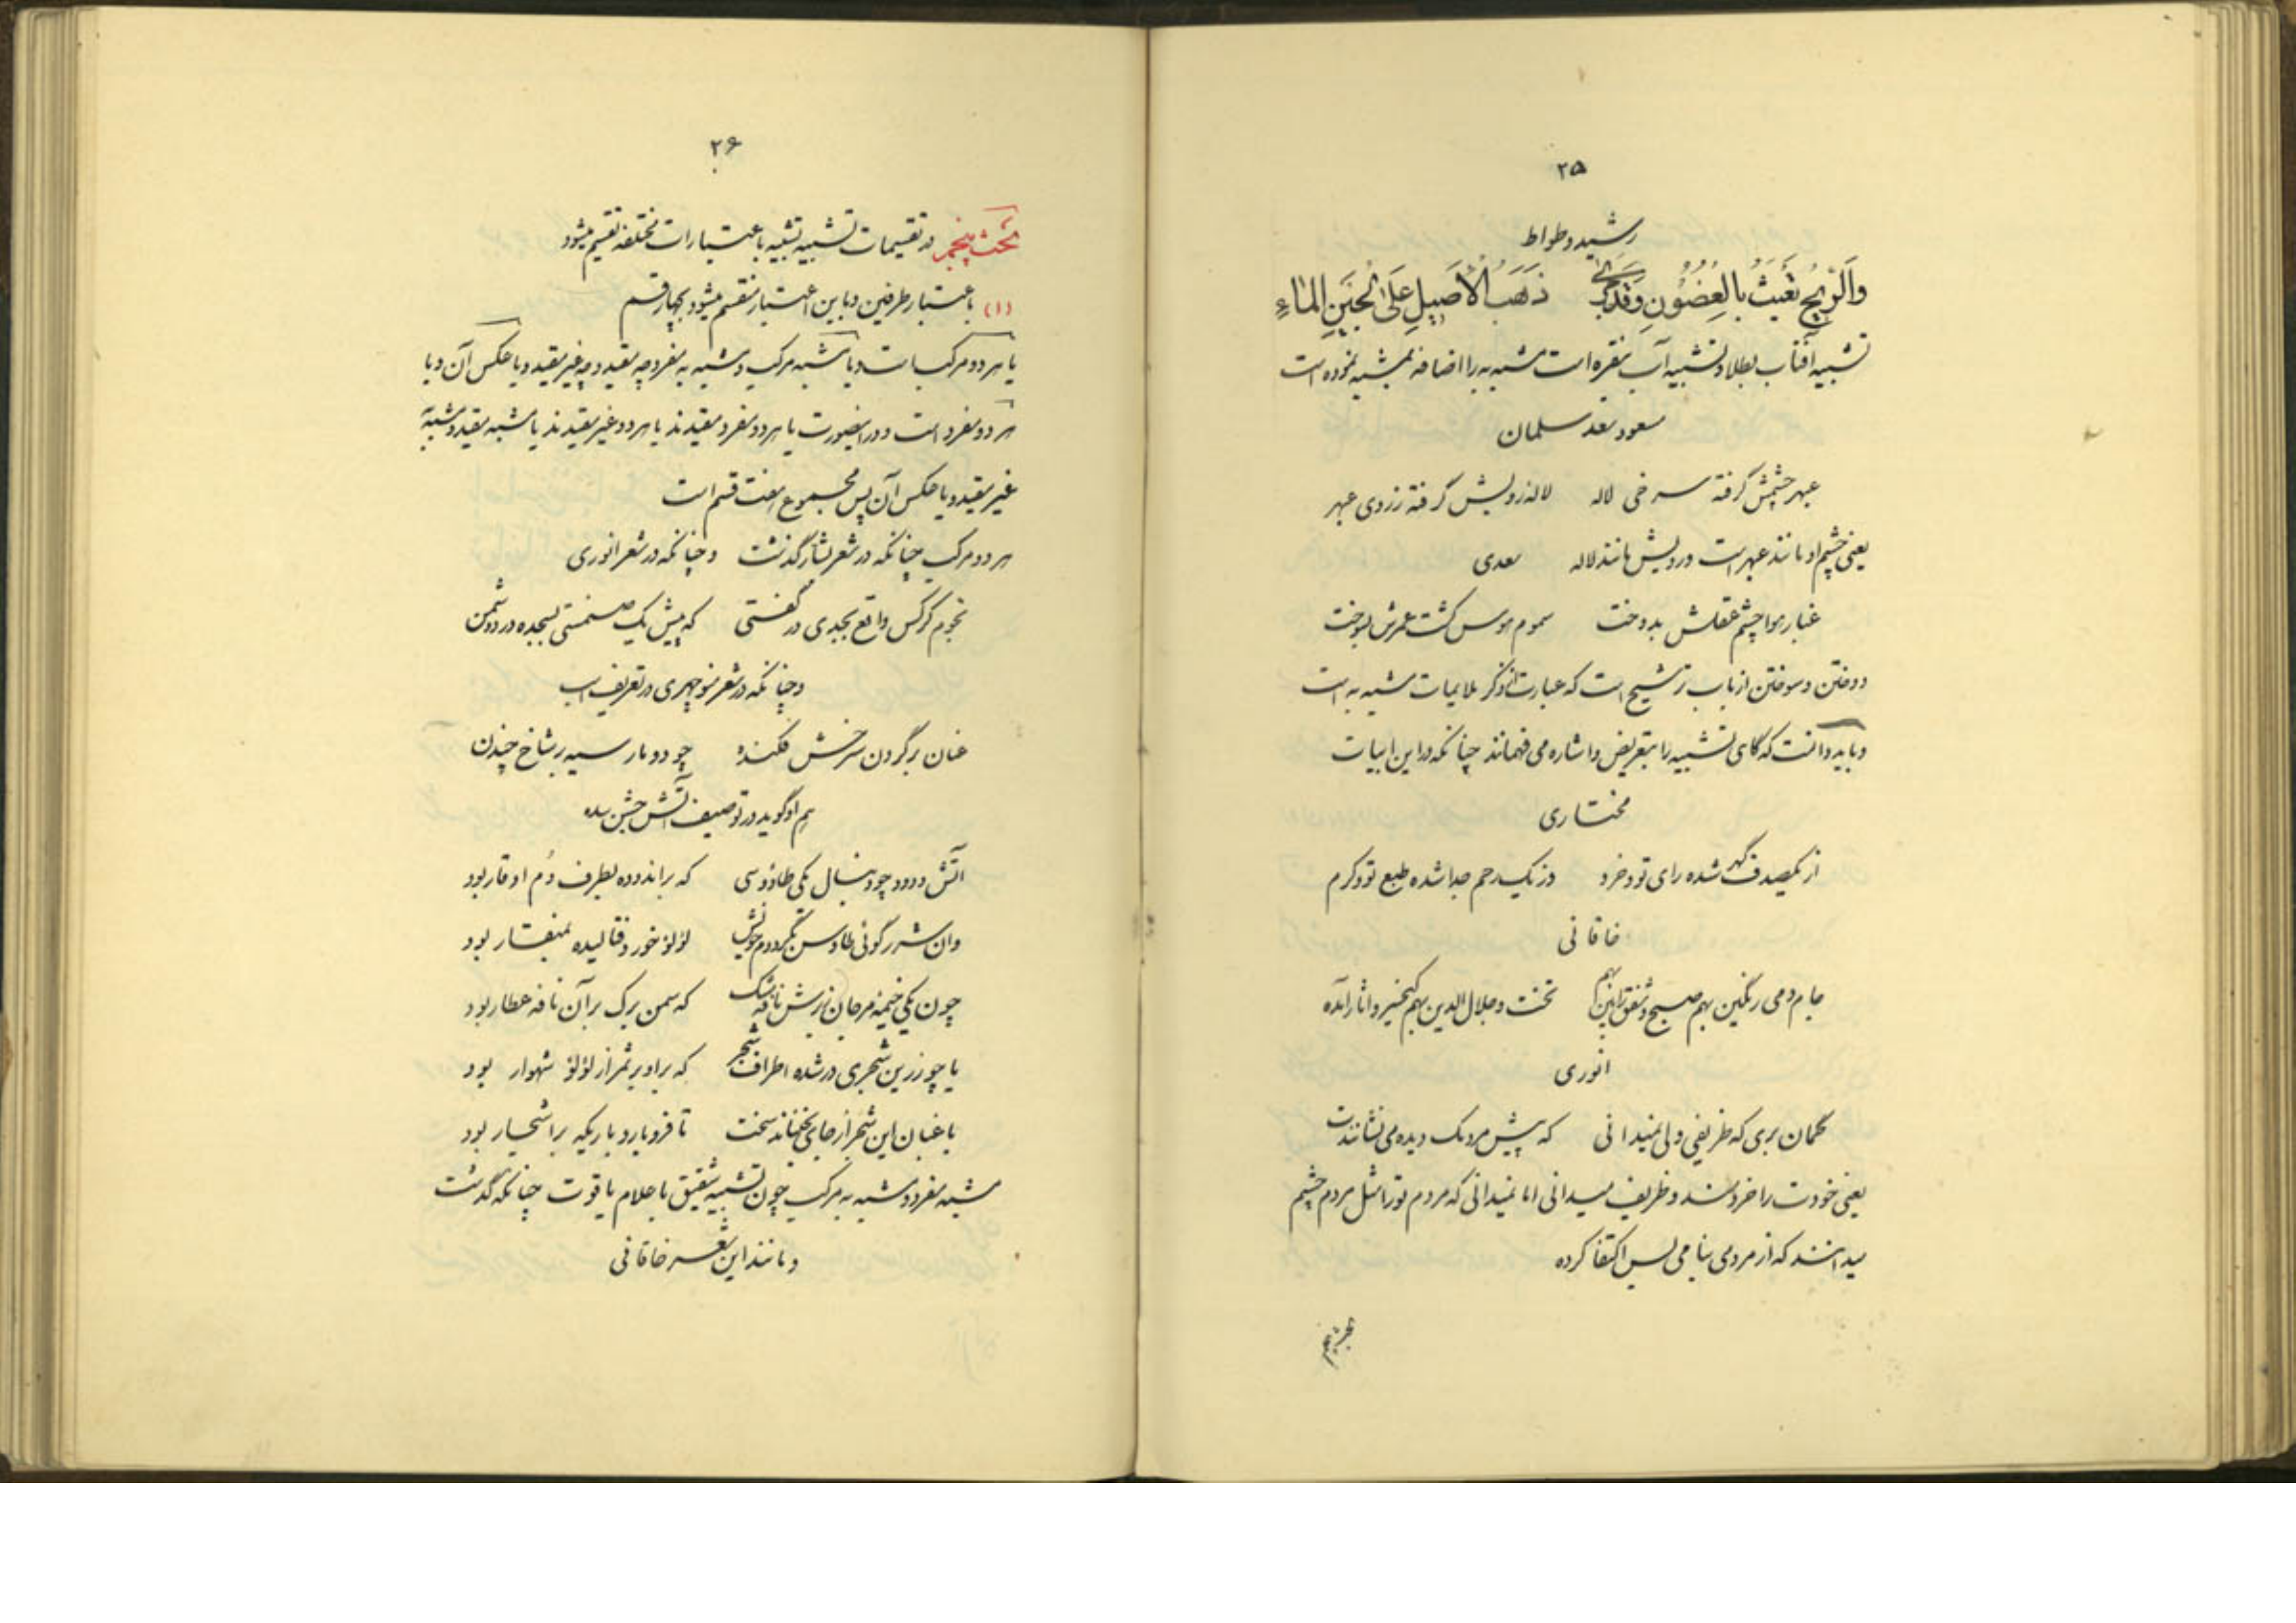 ۲۵
رشید وطواط
وَالرّیحُ تَعبَثُ بِالغُصُونِ وَقَد جَری ذَهَبُ الأَصِیلِ عَلیٰ لُجَینِ المٰاءِ
تشبیه آفتاب بطلا و تشبیه آب بنقره است مشبه به را اضافه بمشبه نموده است
مسعود سعد سلمان
عبهر چشمش گرفته سرخی لاله لاله رویش گرفته زردی عبهر
یعنی چشم او مانند عبهر است و رویش مانند لاله سعدی
غبار هوا چشم عقلش بدوخت سموم هوس کشت عمرش بسوخت
دوختن و سوختن از باب ترشیح است که عبارت از ذکر ملایمات مشبه به است
و باید دانست که گاهی تشبیه را بتعریض و اشاره می فهمانند چنانکه در این ابیات
مختاری
از یکصدف گهر شده رای تو و خرد وز یک رحم جدا شده طبع تو و کرم
خاقانی
جام و می رنگین بهم صبح و شفق را بین بهم تخت و جلال الدین بهم کیخسرو آثار آمده
انوری
گمان بری که ظریفی ولی نمیدانی که پیش مردمک دیده می نشانندت
یعنی خودت را خردمند و ظریف میدانی اما نمیدانی که مردم تو را مثل مردم چشم
میدانند که از مردمی بنامی بس اکتفا کرده
۲۶
بحث پنجم در تقسیمات تشبیه تشبیه باعتبارات مختلفه تقسیم میشود
(۱) باعتبار طرفین و باین اعتبار منقسم میشود بچهار قسم
یا هر دو مرکب است و یا مشبه مرکب و مشبه به مفرد چه مقید و چه غیر مقید و یا عکس آن و یا
هر دو مفرد است و در اینصورت یا هر دو مفرد مقیدند یا هر دو غیر مقیدند یا مشبه مقید و مشبه به
غیر مقید و یا عکس آن پس مجموع هفت قسم است
هر دو مرکب چنانکه در شعر بشار گذشت و چنانکه در شعر انوری
نجوم کرکس واقع بجدی در گفتی که پیش یک صنمستی بسجده در دو شمن
و چنانکه در شعر منوچهری در تعریف اسب
عنان بر گردن سرخش فکنده چو دو مار سیه بر شاخ چندن
هم او گوید در توصیف آتش جشن سده
آتش و دود چو دنبال یکی طاوسی که بر اندوده بطرف دُم او قار بود
وان شرر گوئی طاوس بگرد دم خویش لؤلؤ خورد فتالیده بمنقار بود
چون یکی خیمه مرجان ز برش نافه مشک که سمن برگ بر آن نافه عطار بود
یا چو زرین شجری در شده اطراف شجر که بر او بر ثمر از لؤلؤ شهوار بود
باغبان این شجر از جای بجنباند سخت تا فرو بارد باریکه بر اشجار بود
مشبه مفرد و مشبه به مرکب چون تشبیه شقیق باعلام یاقوت چنانکه گذشت
و مانند این شعر خاقانی